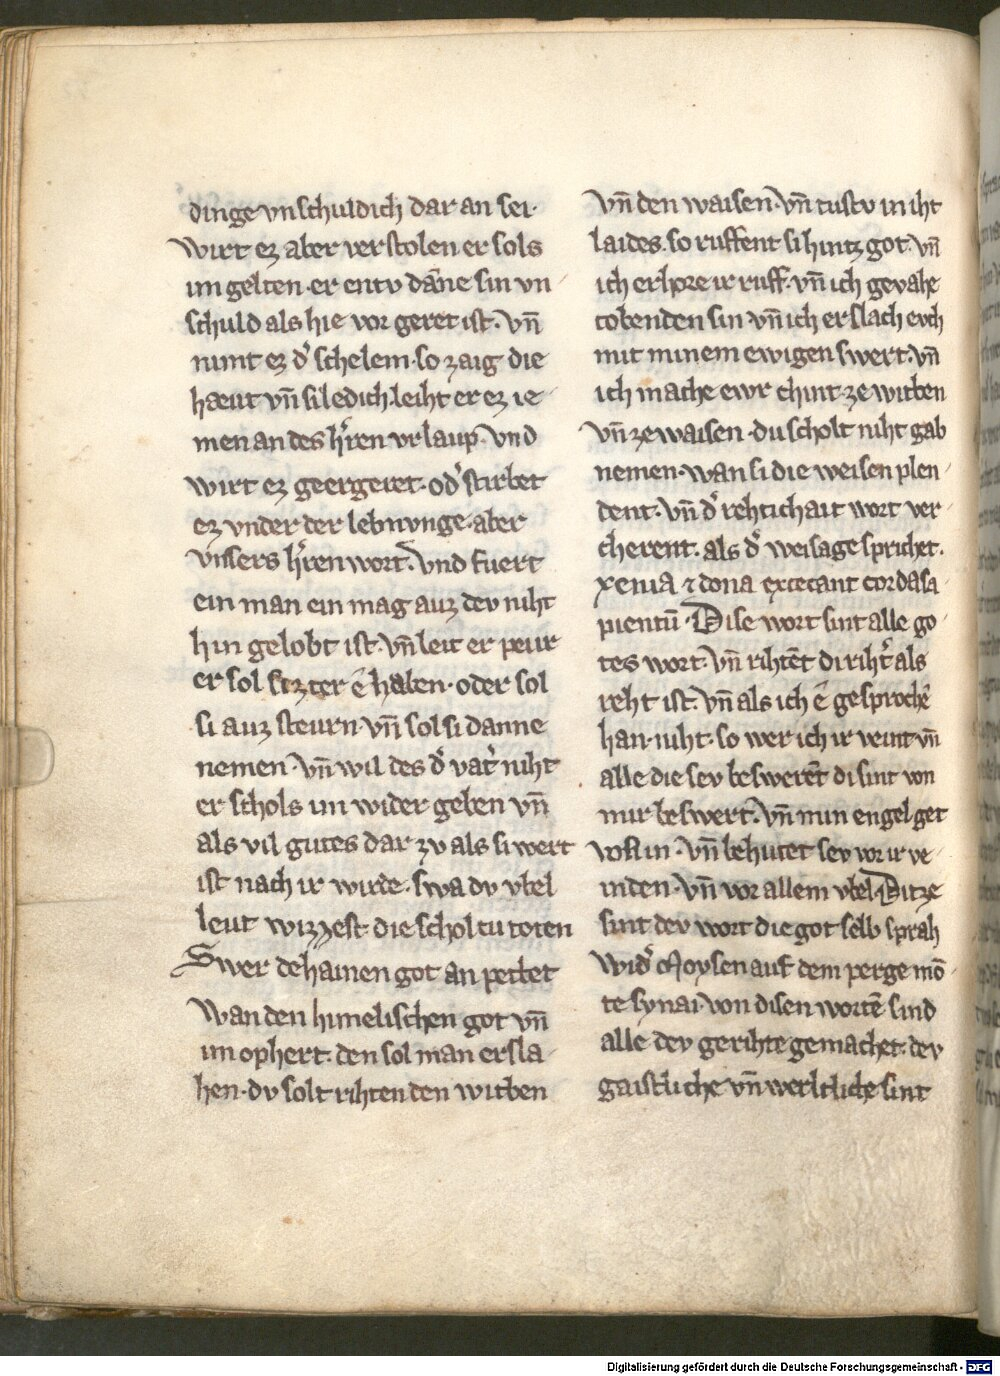 dinge vnschuldich dar an sei·
wirt ez aber verstolen er sols
im gelten· er entv dāne sin vn
schuld als hie vor geret ist· vn̄
nimt ez d͛ schelem· so zaig die
haeut vn̄ si ledich· leiht er ez ie
men an des h͛ren vrlaup· vnd
wirt ez geergeret· od͛ stirbet
ez vnder der lebnvnge· aber
vnsers h͛ren wort· vnd fuert
ein man ein mag auz dev niht
hin gelobt ist· vn̄ leit er peur
er sol ze ē haben· oder sol
si auz steurn vn̄ sol si danne
nemen· vn̄ wil des d͛ vat͛ niht
er schols im wider geben vn̄
als vil gutes dar zv als si wert
ist nach ir wirde· swa dv vbel
leut wizzest· die scholtu toten
Swer dehainen got an peitet
wan den himelischen got vn̄
im ophert· den sol man ersla
hen· dv solt rihten den witben
vn̄ den waisen· vn̄ tustv in iht
laides· so ruffent si hintz got· vn̄
ich erhore ir ruff· vn̄ ich gevahe
tobenden sin vn̄ ich erslach evch
mit minem ewigen swert· vn̄
ich mache ewr chint ze witben
vn̄ ze waisen· du scholt niht gab
nemen· wan si die weisen plen
dent· vn̄ d͛ rehtichait wort ver
cherent· als d͛ weisage sprichet·
xenia ⁊ dona excecant corda sa
pientū· Dise wort sint alle go
tes wort· vn̄ rihtēt di riht͛ als
reht ist· vn̄ als ich ē gesprochē
han· niht· so wer ich ir veint vn̄
alle die sev beswerēt di sint von
mir beswert· vn̄ min engel get
vor in· vn̄ behutet sev vor ir ve
inden· vn̄ vor allem vbel· Ditze
sint dev wort die got selb sprah
wid͛ Moysen auf dem perge mō
te synai· von disen wortē sind
alle dev gerihte gemachet· dev
gaistliche vn̄ werltliche sint
Digitalisierung gefördert durch die Deutsche Forschungsgemeinschaft - DFG